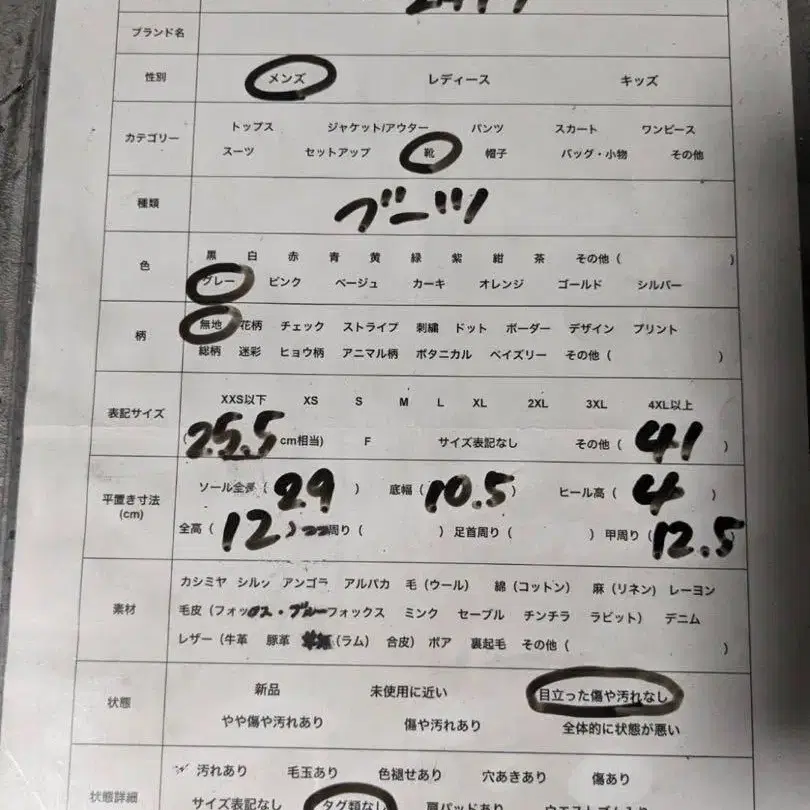 ブランド名
性別 メンズ レディース キッズ
カテゴリー
トップス ジャケット/アウター パンツ スカート ワンピース
スーツ セットアップ 靴 帽子 バッグ・小物 その他
種類 ブーツ
色
黒 白 赤 青 黄 緑 紫 紺 茶 その他（ ）
グレー ピンク ベージュ カーキ オレンジ ゴールド シルバー
柄
無地 花柄 チェック ストライプ 刺繍 ドット ボーダー デザイン プリント
総柄 迷彩 ヒョウ柄 アニマル柄 ボタニカル ペイズリー その他（ ）
表記サイズ
XXS以下 XS S M L XL 2XL 3XL 4XL以上
（25.5cm相当） F サイズ表記なし その他（ 41 ）
平置き寸法
(cm)
ソール全長（ 29 ） 底幅（ 10.5 ） ヒール高（ 4 ）
全高（ 12 ） 周り（ ） 足首周り（ ） 甲周り（ 12.5
素材
カシミヤ シルク アンゴラ アルパカ 毛（ウール） 綿（コットン） 麻（リネン） レーヨン
毛皮（フォックス・ブルーフォックス ミンク セーブル チンチラ ラビット） デニム
レザー（牛革 豚革 （ラム） 合皮） ボア 裏起毛 その他（ ）
状態
新品 未使用に近い 目立った傷や汚れなし
やや傷や汚れあり 傷や汚れあり 全体的に状態が悪い
状態詳細
汚れあり 毛玉あり 色褪せあり 穴あきあり 傷あり
サイズ表記なし タグ類なし 肩パッドあり